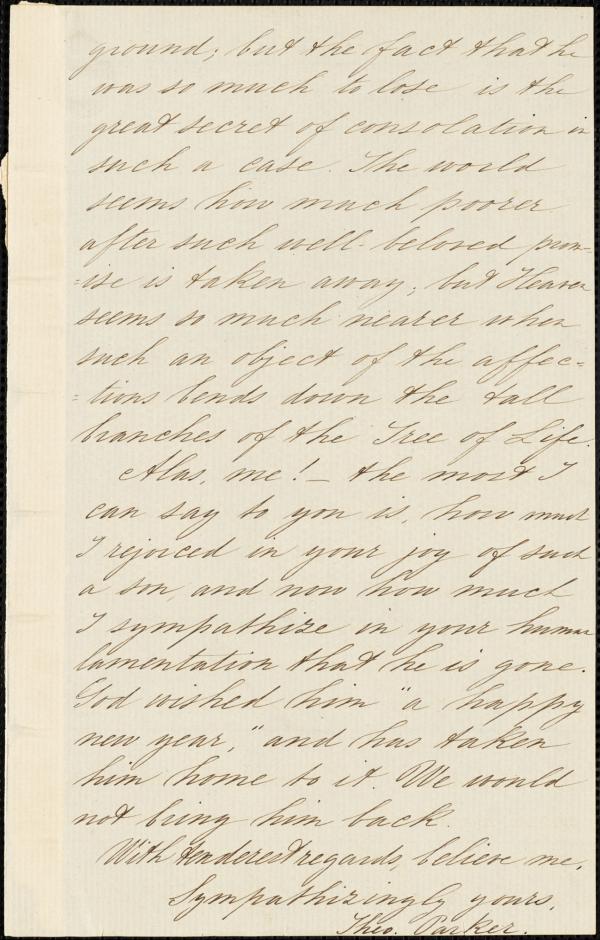 ground; but the fact that he
was so much to lose is the
great secret of consolation in
such a case. The world
seems how much poorer
after such well-beloved prom=
=ise is taken away; but Heaven
seems so much nearer when
such an object of the affec=
=tions bends down the tall
branches of the Tree of Life.
Alas, me! — the most I
can say to you is, how much
I rejoiced in your joy of such
a son, and now how much
I sympathize in your human
lamentation that he is gone.
God wished him "a happy
new year," and has taken
him home to it. We would
not bring him back.
With tenderest regards, believe me,
Sympathizingly yours,
Theo. Parker.